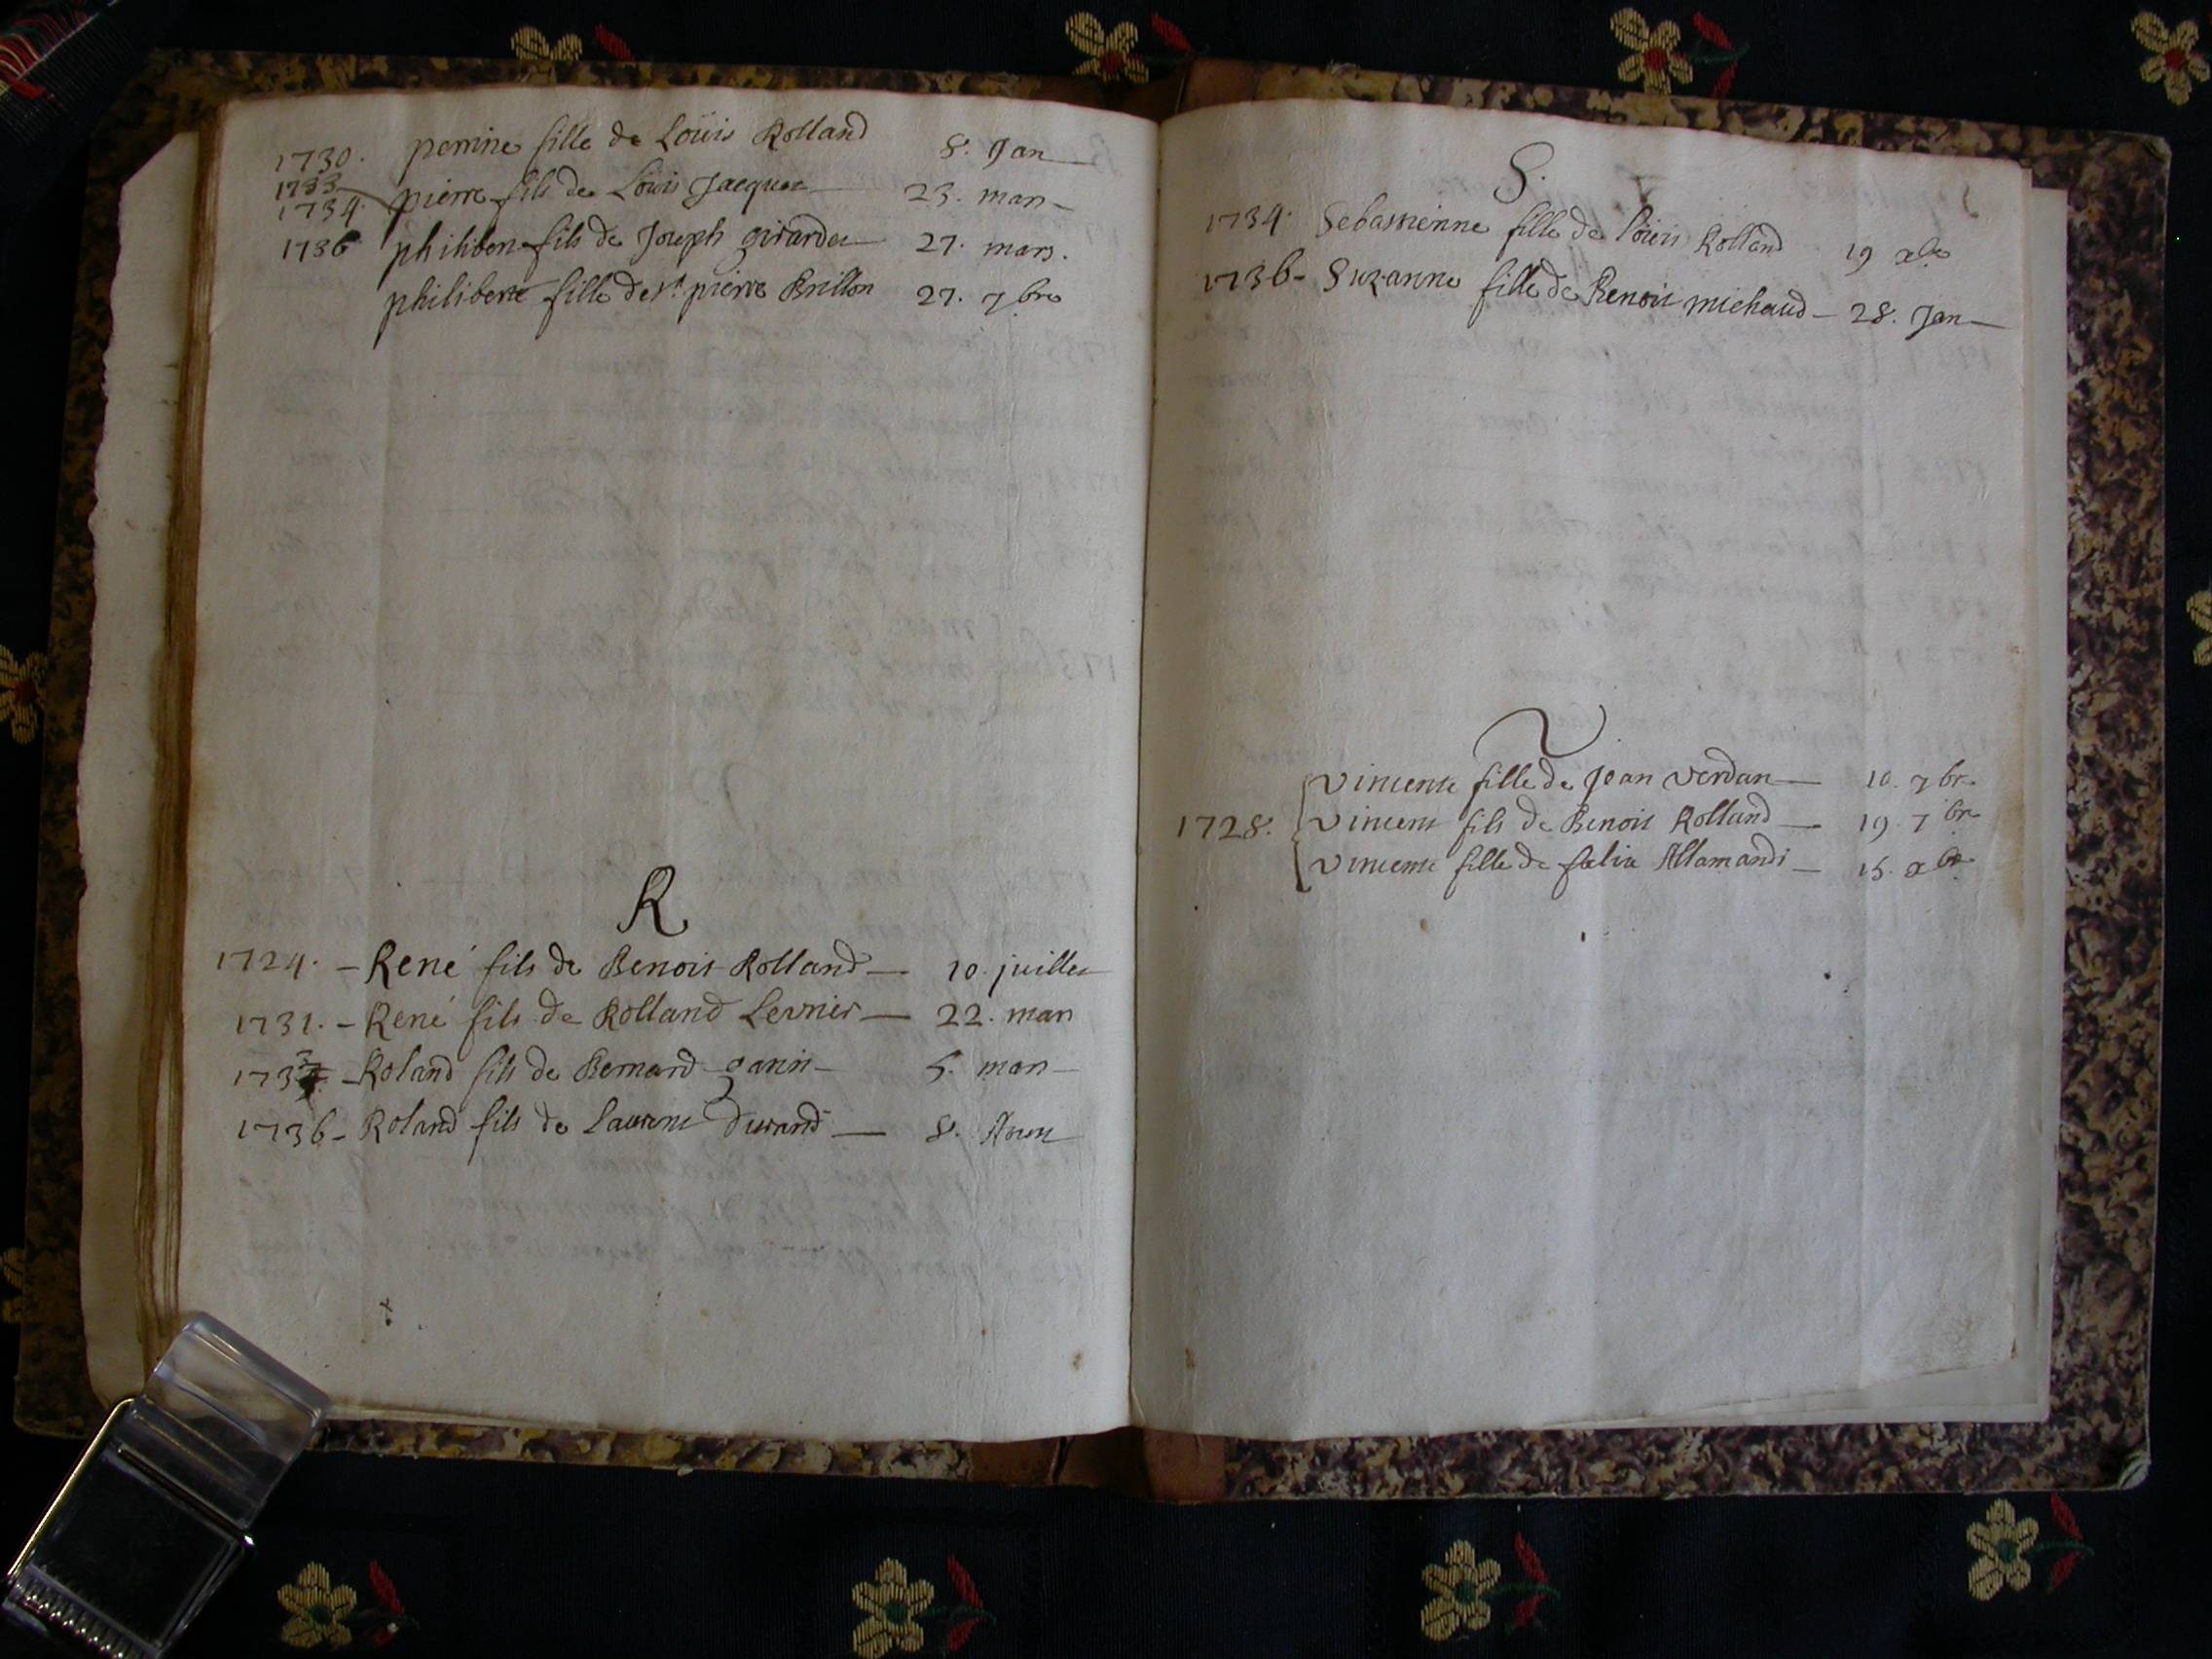 1730. perrine fille de Loüis Rolland 8. Jan
1733 pierre fils de Loüis Jacquet 23. mars
1734.
1736 philibert fils de Joseph girardet 27. mars.
philiberte fille de sr. pierre Brillon 27. 7bre
R
1724. - René fils de Benoit Rolland 10. juillet
1731. - René fils de Rolland Levrier 22. mars
173 - Roland fils de Bernard garin 5. mars
1736 - Roland fils de Laurent durand 8. Aoust
S.
1734. Sebastienne fille de loüis Rolland 19 xbre
1736 - Suzanne fille de Benoit michaud - 28. Jan
V
Vincente fille de Jean verdan 10. 7bre
1728. Vincent fils de Benoit Rolland 19. 7bre
Vincente fille de felix Allamandi - 15. xbre